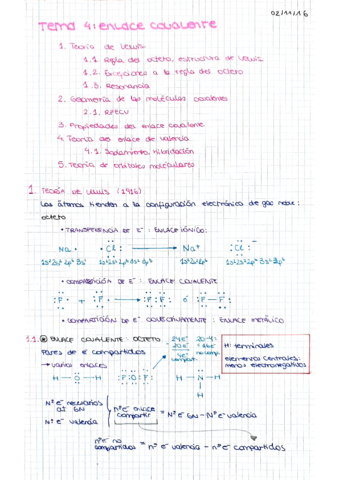 02/11/16
TEMA 4: ENLACE COVALENTE
1. Teoría de Lewis
1.1. Regla del octeto, estructura de Lewis
1.2. Excepciones a la regla del octeto
1.3. Resonancia
2. Geometría de las moléculas covalentes
2.1. RPECV
3. Propiedades del enlace covalente
4. Teoría del enlace de valencia
4.1. Solapamiento. Hibridación
5. Teoría de orbitales moleculares
1. TEORÍA DE LEWIS (1916)
Los átomos tienden a la configuración electrónica de gas noble:
octeto
• TRANSFERENCIA DE E⁻: ENLACE IÓNICO:
Na • •Cl: → Na⁺ :Cl:⁻
• COMPARTICIÓN DE E⁻: ENLACE COVALENTE
:F• + :F• → :F:F: ó :F—F:
• COMPARTICIÓN DE E⁻ COLECTIVAMENTE: ENLACE METÁLICO
1.1. ENLACE COVALENTE: OCTETO
Pares de e⁻ compartidos
→ varios enlaces
H—O—H :F:O:F: H—N—H
H
24e⁻
20e⁻
4e⁻
compart.
20-4
=16e⁻
no comp.
H: terminales
elementos centrales:
menos electronegativos
Nº e⁻ necesarios
Nº e⁻ valencia
nº e⁻ enlace
compartir = Nº e⁻ GN - Nº e⁻ valencia
nº e⁻ no
compartidos = nº e⁻ valencia - nº e⁻ compartidos